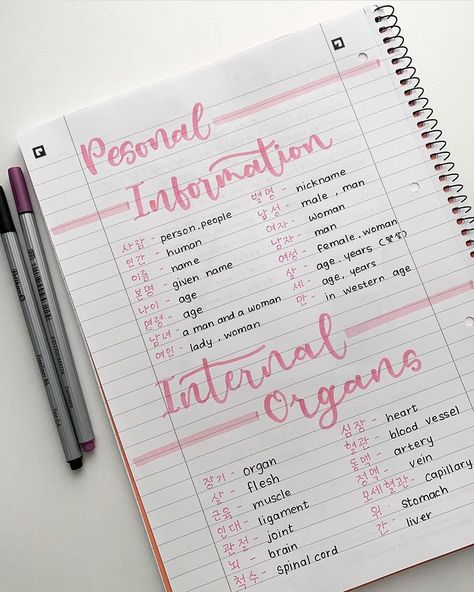 Pesonal
Information
사람 - person, people
인간 - human
이름 - name
본명 - given name
나이 - age
연령 - age
남녀 - a man and a woman
여인 - lady, woman
별명 - nickname
남성 - male, man
여자 - woman
남자 - man
여성 - female, woman
살 - age, years
세 - age, years
만 - in western age
Internal
Organs
장기 - organ
살 - flesh
근육 - muscle
인대 - ligament
관절 - joint
뇌 - brain
척수 - spinal cord
심장 - heart
혈관 - blood vessel
동맥 - artery
정맥 - vein
모세혈관 - capillary
위 - stomach
간 - liver